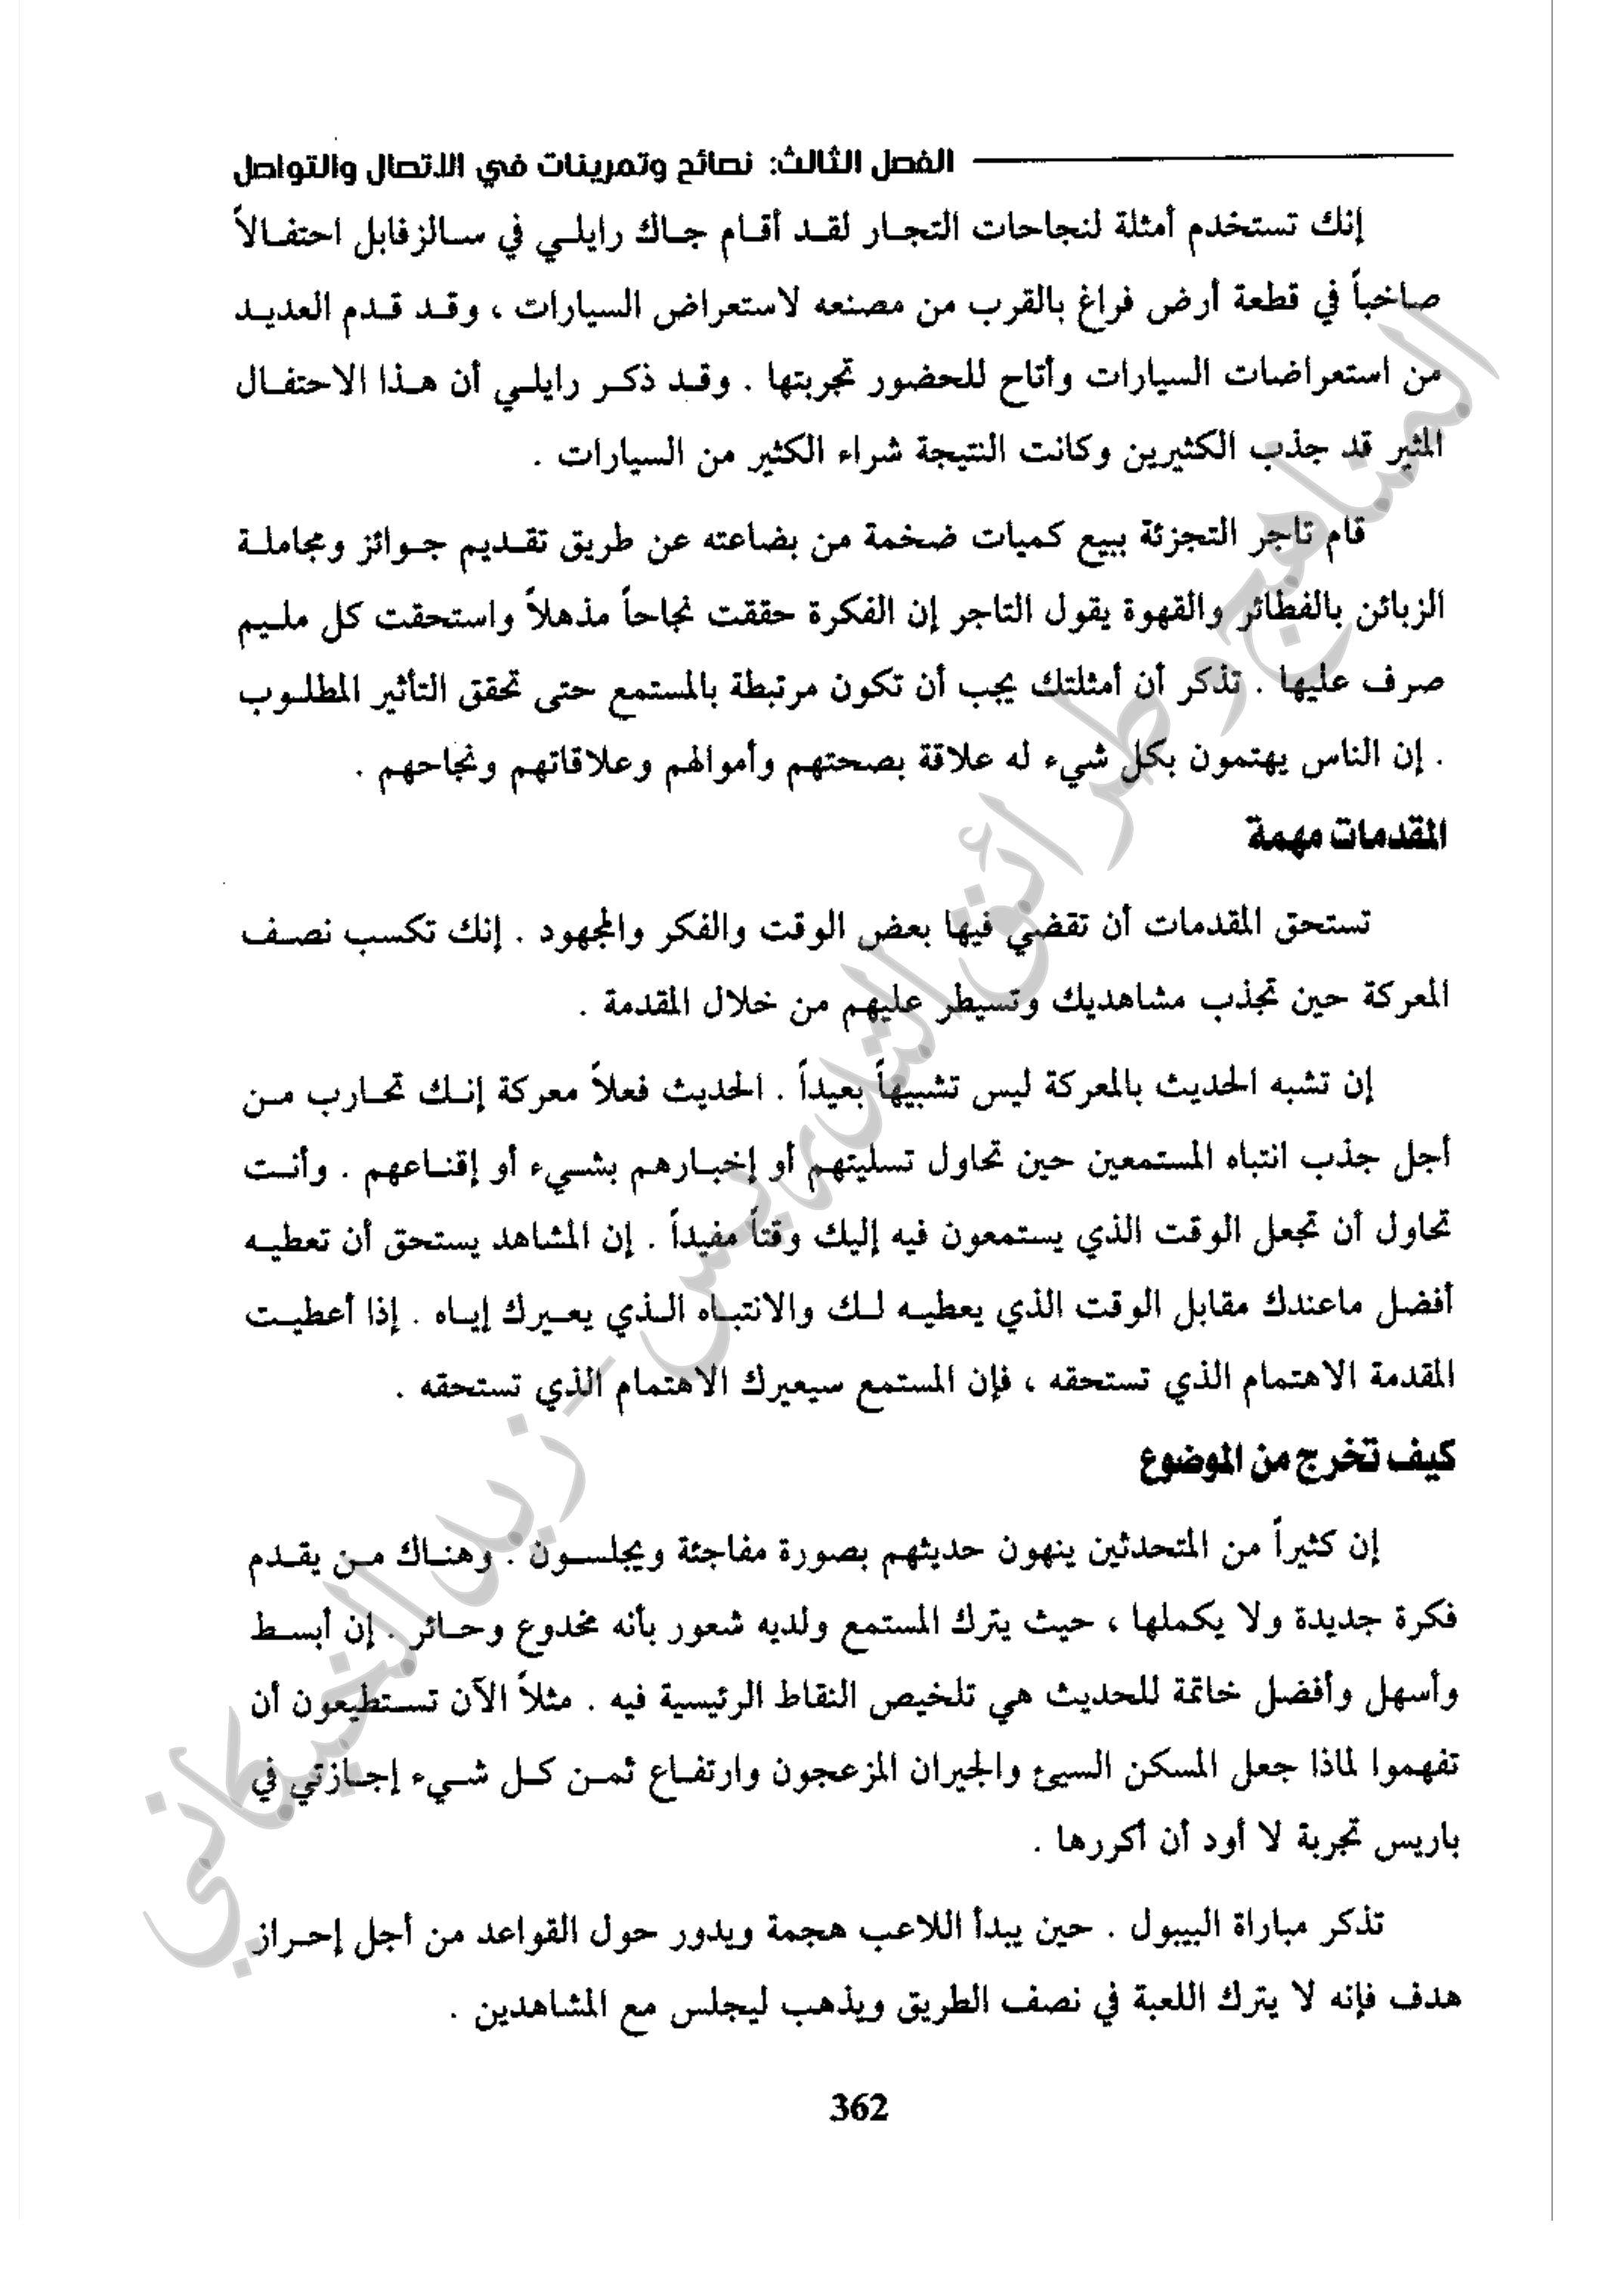 الفصل الثالث: نصائح وتمرينات في الاتصال والتواصل
إنك تستخدم أمثلة لنجاحات التجار لقد أقام جاك رايلي في سالزفابل احتفالاً
صاخباً في قطعة أرض فراغ بالقرب من مصنعه لاستعراض السيارات ، وقد قدم العديد
من استعراضات السيارات وأتاح للحضور تجربتها . وقد ذكر رايلي أن هذا الاحتفال
المثير قد جذب الكثيرين وكانت النتيجة شراء الكثير من السيارات .
قام تاجر التجزئة ببيع كميات ضخمة من بضاعته عن طريق تقديم جوائز ومجاملة
الزبائن بالفطائر والقهوة يقول التاجر إن الفكرة حققت نجاحاً مذهلاً واستحقت كل مليم
صرف عليها . تذكر أن أمثلتك يجب أن تكون مرتبطة بالمستمع حتى تحقق التأثير المطلوب
. إن الناس يهتمون بكل شيء له علاقة بصحتهم وأموالهم وعلاقاتهم ونجاحهم .
المقدمات مهمة
تستحق المقدمات أن تقضي فيها بعض الوقت والفكر والمجهود . إنك تكسب نصف
المعركة حين تجذب مشاهديك وتسيطر عليهم من خلال المقدمة .
إن تشبه الحديث بالمعركة ليس تشبيهاً بعيداً . الحديث فعلاً معركة إنك تحارب من
أجل جذب انتباه المستمعين حين تحاول تسليتهم أو إخبارهم بشيء أو إقناعهم . وأنت
تحاول أن تجعل الوقت الذي يستمعون فيه إليك وقتاً مفيداً . إن المشاهد يستحق أن تعطيه
أفضل ماعندك مقابل الوقت الذي يعطيه لك والانتباه الذي يعيرك إياه . إذا أعطيت
المقدمة الاهتمام الذي تستحقه ، فإن المستمع سيعيرك الاهتمام الذي تستحقه .
كيف تخرج من الموضوع
إن كثيراً من المتحدثين ينهون حديثهم بصورة مفاجئة ويجلسون . وهناك من يقدم
فكرة جديدة ولا يكملها ، حيث يترك المستمع ولديه شعور بأنه مخدوع وحائر . إن أبسط
وأسهل وأفضل خاتمة للحديث هي تلخيص النقاط الرئيسية فيه . مثلاً الآن تستطيعون أن
تفهموا لماذا جعل المسكن السيئ والجيران المزعجون وارتفاع ثمن كل شيء إجازتي في
باريس تجربة لا أود أن أكررها .
تذكر مباراة البيبول . حين يبدأ اللاعب هجمة ويدور حول القواعد من أجل إحراز
هدف فإنه لا يترك اللعبة في نصف الطريق ويذهب ليجلس مع المشاهدين .
362
المناهج وطرائق التدريس - زيد الخيكاني